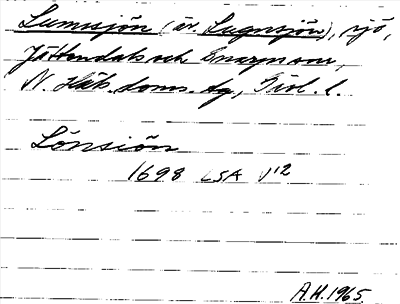 Lumssjön (äv. Lugnsjön), sjö,
Jättendals och Gnarps snr,
N. Häls. doms. tg, Gävl. l.
Lönsiön
1698 LSA V12
A.H. 1965